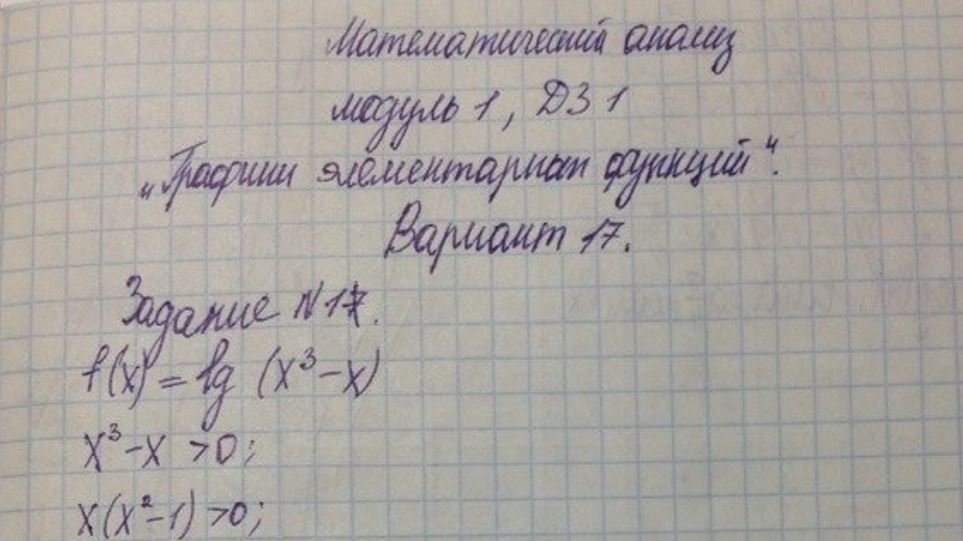 Математический анализ
модуль 1, ДЗ 1
„Графики элементарных функций".
Вариант 17.
Задание №17.
f(x) = lg (x³-x)
x³-x >0;
x(x²-1)>0;